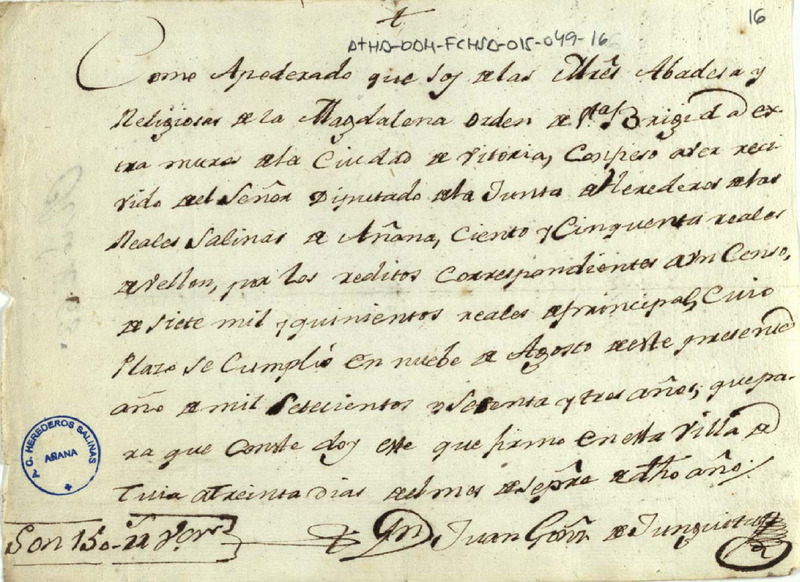 16
ATHA-DAH-FCHSA-015-049-16
Como Apoderado que soy de las Mrês Abadesa y
Religiosas de la Magdalena orden de Sta Brigida ex
tra muros de la Ciudad de Vitoria, Confieso aver reci
vido del Señor Diputado de la Junta de Herederos de las
Reales Salinas de Añana, Ciento y Cinquenta reales
de Vellon, por los reditos Correspondientes a un Censo,
de siete mil y quinientos reales de principal, Cuio
Plazo se Cumplio en nuebe de Agosto de este presente
año de mil setecientos y setenta y tres años; y que pa
ra que Conste doy este que firmo en esta Villa de
Tuia a treinta dias del mes de sepre de dho año
Son 150
Juan de Junguitu
P. C. HEREDEROS SALINAS
AÑANA